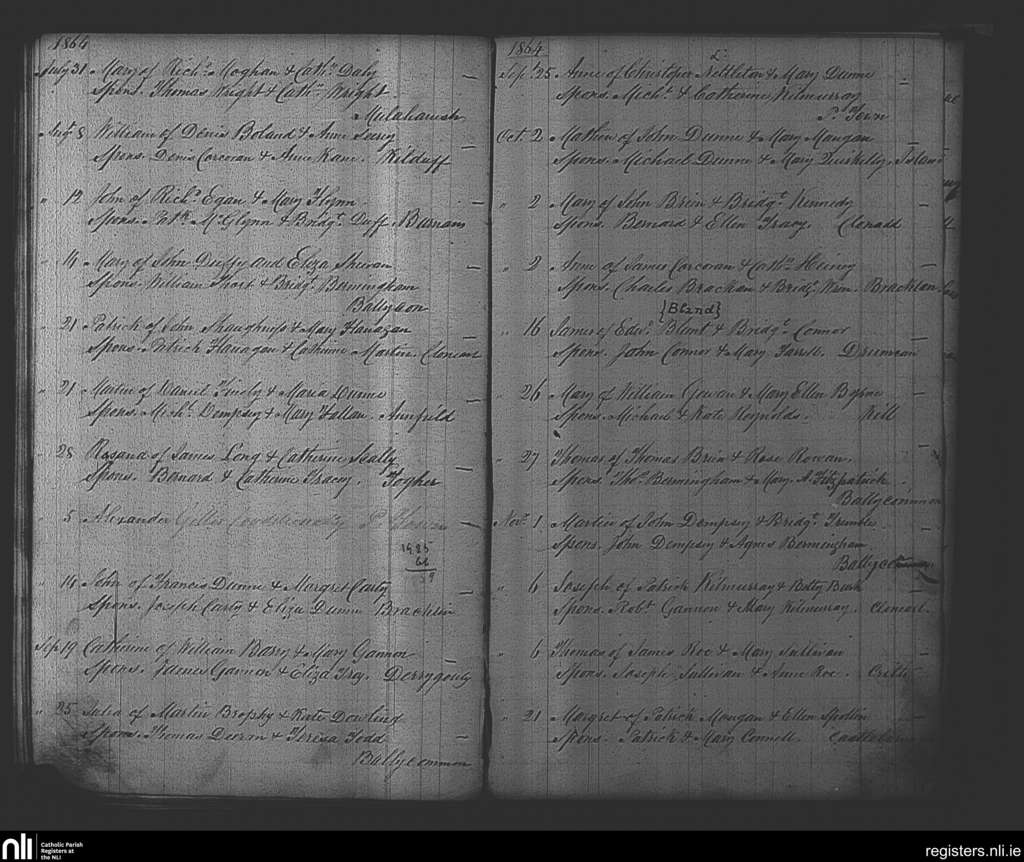 1864
July 31 Mary of Richd. Moghan & Cathn. Daly
Spons. Thomas Wright & Cathn. Wright
Mulaharish
Augt. 8 William of Denis Boland & Anne
Spons. Denis Corcoran & Anne Kane. Kilduff
" 12 John of Richd. Egan & Mary Flynn
Spons. Patk. McGlynn & Bridgt. Duff. Barnan
" 14 Mary of John Duffy and Eliza
Spons. William Short & Bridgt. Bermingham
" 21 Patrick of John Shaughniss & Mary Flanagan
Spons. Patrick Flanagan & Catherine Martin.
" 21 Martin of Daniel & Maria Dunne
Spons. Michl. Dempsey & Mary Fallan. Annfield
" 28 Rosanna of James Long & Catherine Scally
Spons. Bernard & Catherine Tracey. Togher
" 5 Alexander Conditionally
1925
64
" 14 John of Francis Dunne & Margret Carty
Spons. Joseph Carty & Eliza Dunne Bracklin
Sep 19 Catherine of William Barry & Mary Gannon
Spons. James Gannon & Eliza
" 25 Julia of Martin Brophy & Kate Dowling
Spons. Thomas & Teresa Todd
Ballycommon
1864
Sept. 25 Anne of Christoper Nettleton & Mary Dunne
Spons. Michl. & Catherine Kilmurray
P. Town
Oct. 2 Mathew of John Dunne & Mary Mangan
Spons. Michael Dunne & Mary Island
" 2 Mary of John Brien & Bridgt. Kennedy
Spons. Bernard & Ellen Tracy. Clonadd
" 2 Anne of James Corcoran & Cathn. Heiney
Spons. Charles Brachan & Bridgt. Bracklin
{Bland}
" 16 James of Edwd. Blent & Bridgt. Connor
Spons. John Connor & Mary Farrell.
" 26 Mary of William Gowan & Mary Ellen Byrne
Spons. Michael & Kate Reynolds. Kell
" 27 Thomas of Thomas Brien & Rose Rowan.
Spons. Thos. Bermingham & Mary A. Fitzpatrick.
Ballycommon
Novr. 1 Martin of John Dempsey & Bridgt. Trimble
Spons. John Dempsey & Agnes Bermingham
Ballycommon
" 6 Joseph of Patrick Kilmurray & Betty
Spons. Robt. Gannon & Mary Kilmurray.
" 6 Thomas of James Roe & Mary Sullivan
Spons. Joseph Sullivan & Anne Roe.
" 21 Margret of Patrick Mangan & Ellen Spollin
Spons. Patrick & Mary Connell.
nli Catholic Parish
Registers at
the NLI
registers.nli.ie